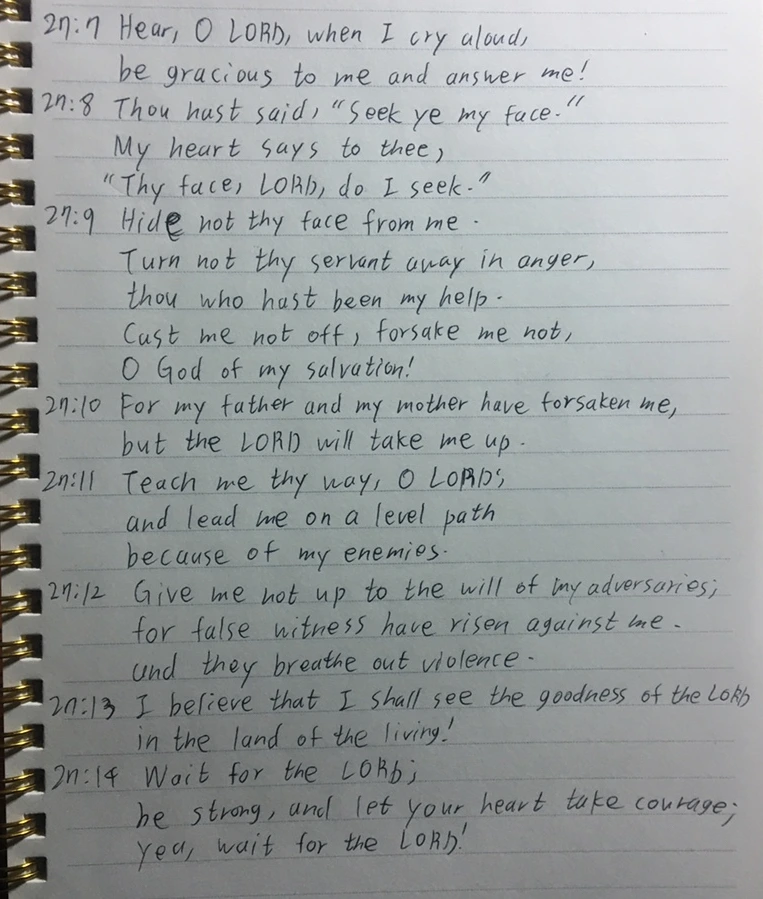 27:7 Hear, O LORD, when I cry aloud,
be gracious to me and answer me!
27:8 Thou hast said, "Seek ye my face."
My heart says to thee,
"Thy face, LORD, do I seek."
27:9 Hide not thy face from me.
Turn not thy servant away in anger,
thou who hast been my help.
Cast me not off, forsake me not,
O God of my salvation!
27:10 For my father and my mother have forsaken me,
but the LORD will take me up.
27:11 Teach me thy way, O LORD;
and lead me on a level path
because of my enemies.
27:12 Give me not up to the will of my adversaries;
for false witness have risen against me.
and they breathe out violence.
27:13 I believe that I shall see the goodness of the LORD
in the land of the living!
27:14 Wait for the LORD;
be strong, and let your heart take courage;
yea, wait for the LORD!